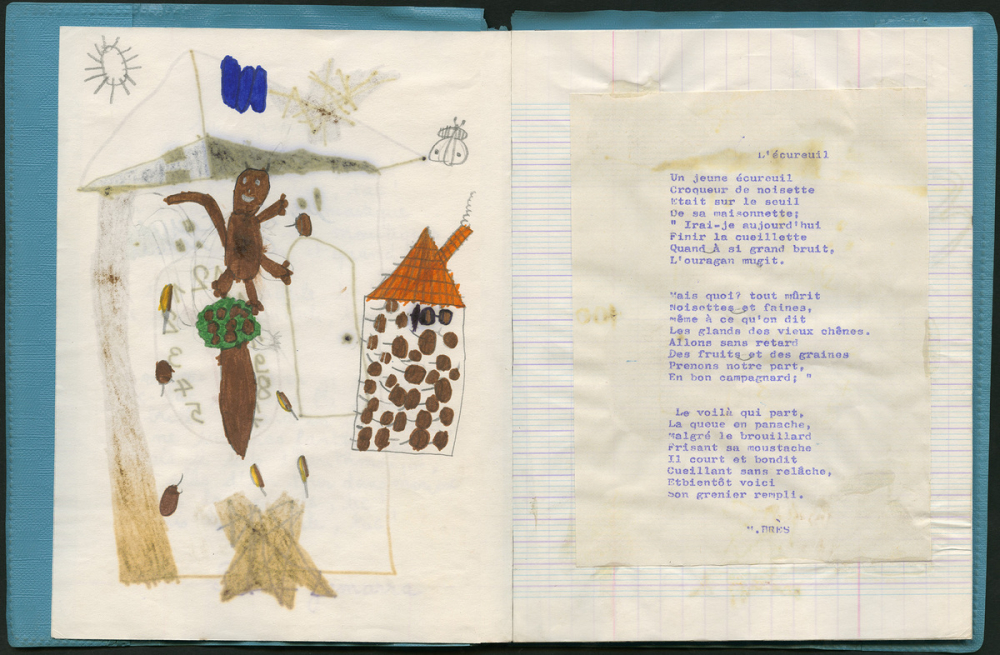 L'écureuil
Un jeune écureuil
Croqueur de noisette
Etait sur le seuil
De sa maisonnette;
" Irai-je aujourd'hui
Finir la cueillette
Quand À si grand bruit,
L'ouragan mugit.
Mais quoi? tout mûrit
Noisettes et faines,
même à ce qu'on dit
Les glands des vieux chênes.
Allons sans retard
Des fruits et des graines
Prenons notre part,
En bon campagnard; "
Le voilà qui part,
La queue en panache,
Malgré le brouillard
Frisant sa moustache
Il court et bondit
Cueillant sans relâche,
Etbientôt voici
Son grenier rempli.
M.BRÈS